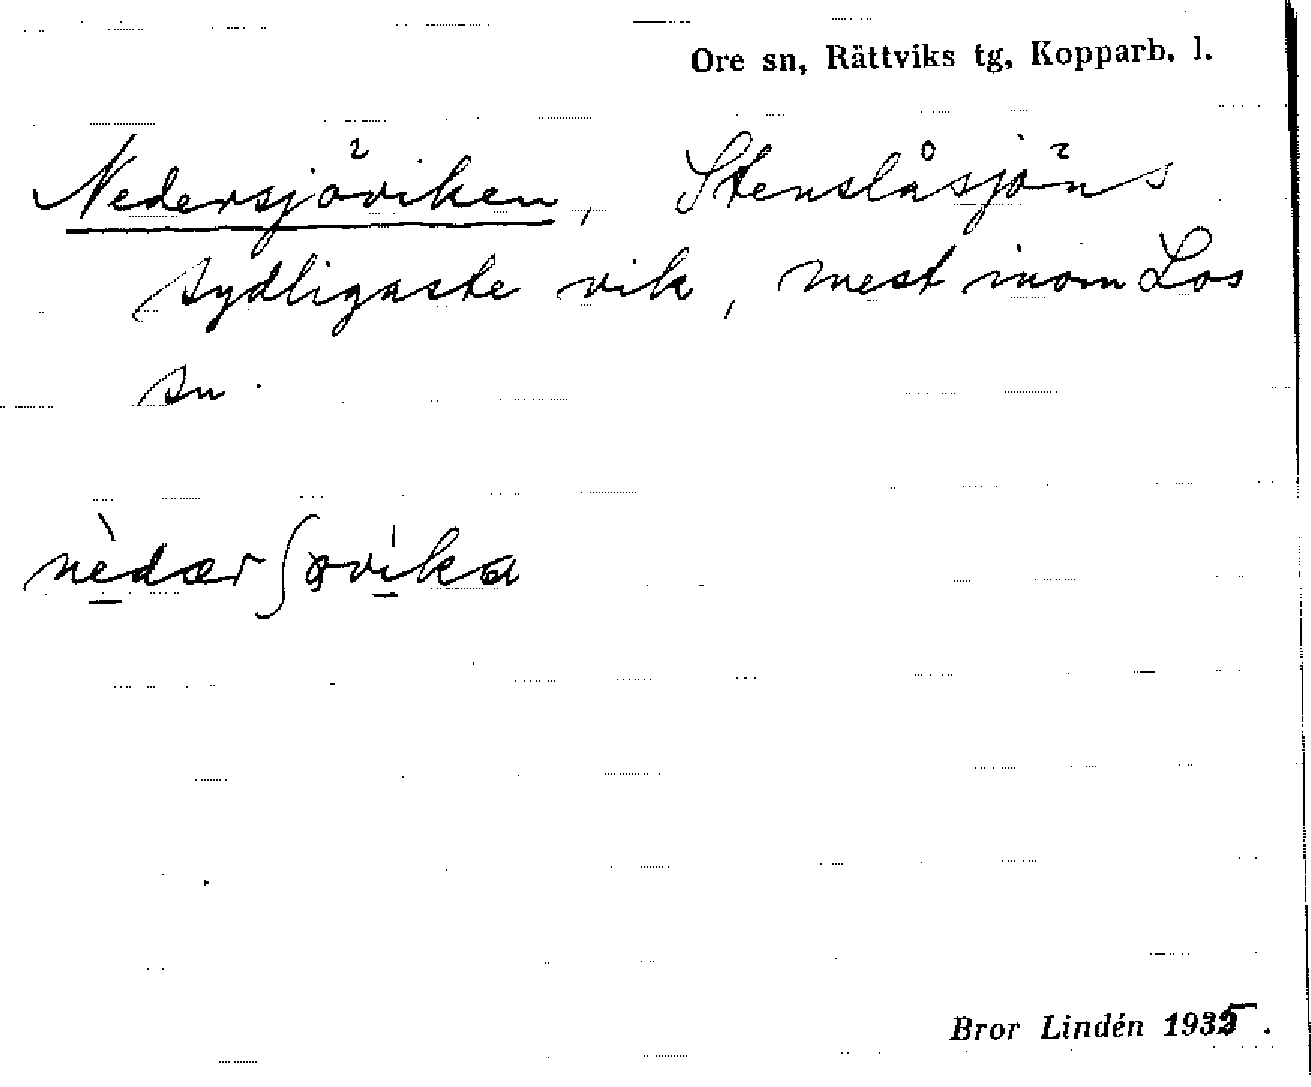 Ore sn, Rättviks tg, Kopparb. l.
Nedersjöviken, Stenslåsjöns
sydligaste vik, mest inom Los
sn.
nèdærʃøvika
Bror Lindén 1935.